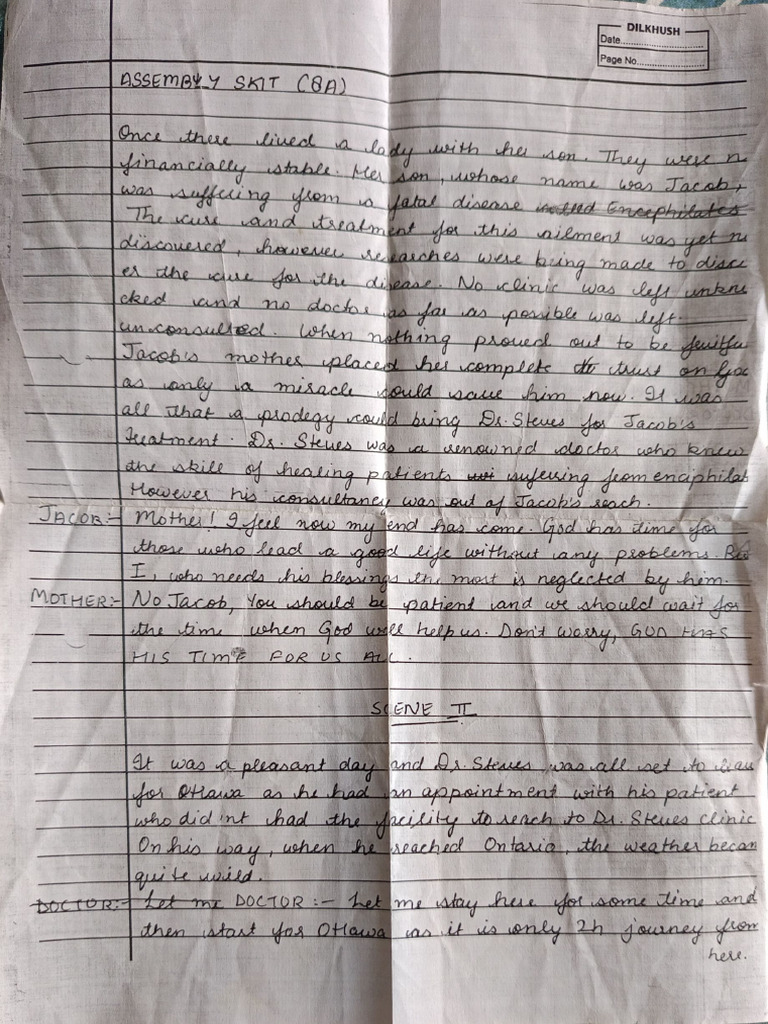 DILKHUSH
Date
Page No.
ASSEMBLY SKIT (8A)
Once there lived a lady with her son. They were n
financially stable. Her son, whose name was Jacob,
was suffering from a fatal disease called Encephilates
The cure and treatment for this ailment was yet n
discovered, however researches were being made to disco
er the cure for the disease. No clinic was left unkno
cked and no doctor as far as possible was left
unconsulted. When nothing proved out to be fruitfu
Jacob's mother placed her complete trust on Go
as only a miracle could save him now. It was
all that a prodegy could bring Dr. Steves for Jacob's
treatment. Dr. Steves was a renowned doctor who knew
the skill of healing patients suffering from enciphilat
However his consultancy was out of Jacob's reach.
JACOB:- Mother! I feel now my end has come. God has time for
those who lead a good life without any problems. But
I, who needs his blessings the most is neglected by him.
MOTHER:- No Jacob, You should be patient and we should wait for
the time when God will help us. Don't worry, GOD HAS
HIS TIME FOR US ALL.
SCENE II
It was a pleasant day and Dr. Steves was all set to leav
for Ottawa as he had an appointment with his patient
who did'nt had the facility to reach to Dr. Steves clinic
On his way, when he reached Ontario, the weather becam
quite wild.
DOCTOR:- Let me DOCTOR :- Let me stay here for some time and
then start for Ottawa as it is only 2h journey from
here.